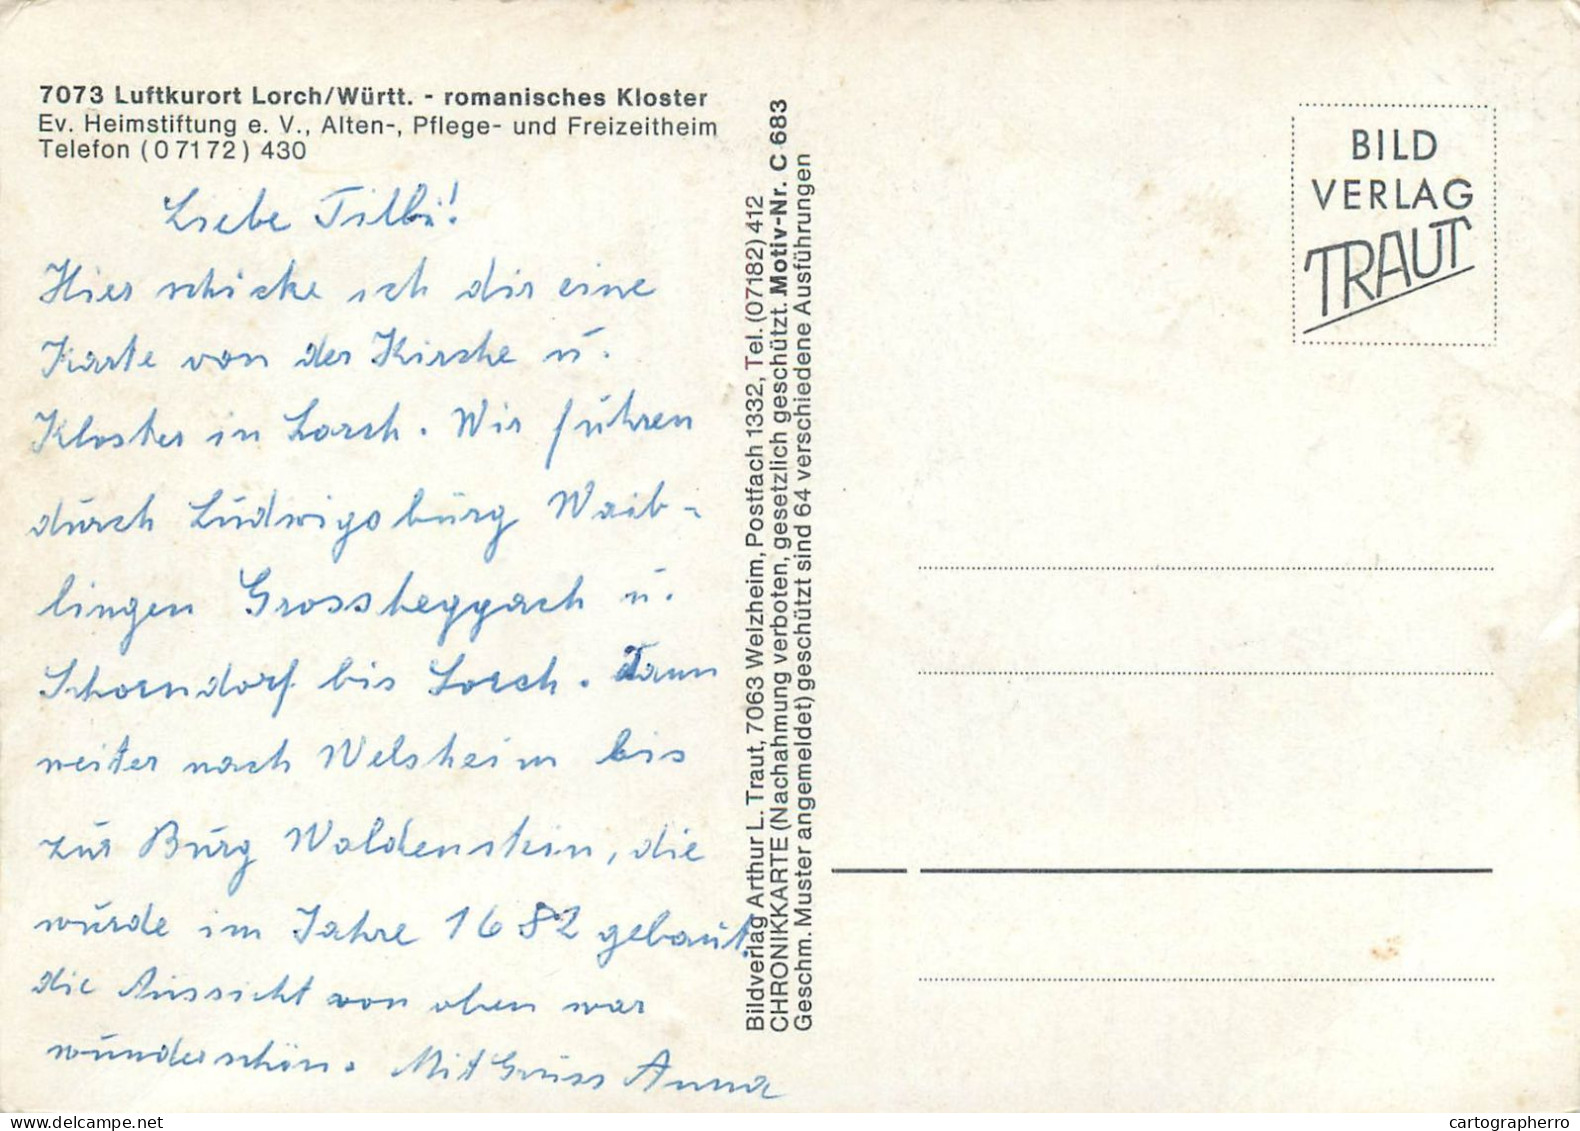 7073 Luftkurort Lorch/Württ. - romanisches Kloster
Ev. Heimstiftung e. V., Alten-, Pflege- und Freizeitheim
Telefon (07172) 430
Liebe Tilbi!
Hier schicke ich dir eine
Karte von der Kirche u.
Kloster in Lorch. Wir führen
dürch Lüdwigsbürg Waib-
lingen Grossheggach u.
Schorndorf bis Lorch. Dann
weiter nach Welsheim bis
zür Bürg Waldenstein, die
würde im Jahre 1682 gebaüt.
die Aüssicht von oben war
wünderschön. Mit Grüss Anna
Bildverlag Arthur L. Traut, 7063 Welzheim, Postfach 1332, Tel. (07182) 412
CHRONIKKARTE (Nachahmung verboten, gesetzlich geschützt. Motiv-Nr. C 683
Geschm. Muster angemeldet) geschützt sind 64 verschiedene Ausführungen
BILD
VERLAG
TRAUT
delcampe.net
cartographerro